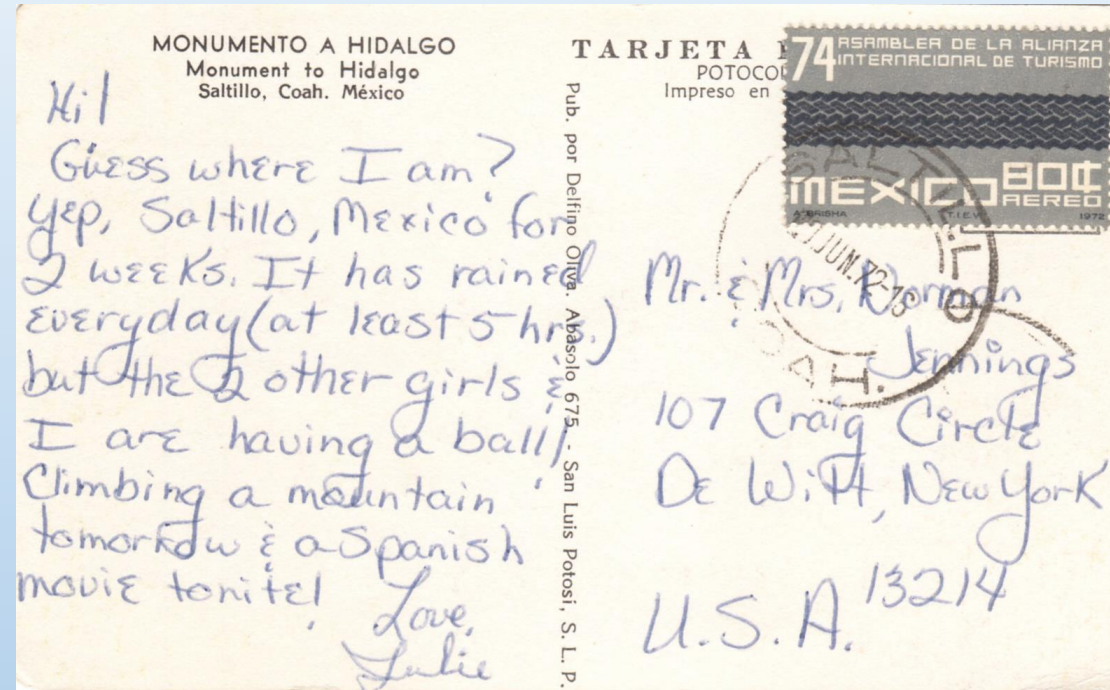 MONUMENTO A HIDALGO
Monument to Hidalgo
Saltillo, Coah. México
Hi!
Guess where I am?
Yep, Saltillo, Mexico for
2 weeks. It has rained
everyday (at least 5 hrs.)
but the 2 other girls &
I are having a ball!
Climbing a mountain
tomorrow & a Spanish
movie tonite!
Love,
Julie
Pub. por Delfino Oliva. Abasolo 675 - San Luis Potosi, S. L. P.
TARJETA
Impreso en
74 ASAMBLEA DE LA ALIANZA
INTERNACIONAL DE TURISMO
MEXICO 80¢
AEREO
T.I.E.V. 1972
SALTILLO
JUN.72-
COAH.
Mr. & Mrs. Norman
Jennings
107 Craig Circle
De Witt, New York
13214
U.S.A.